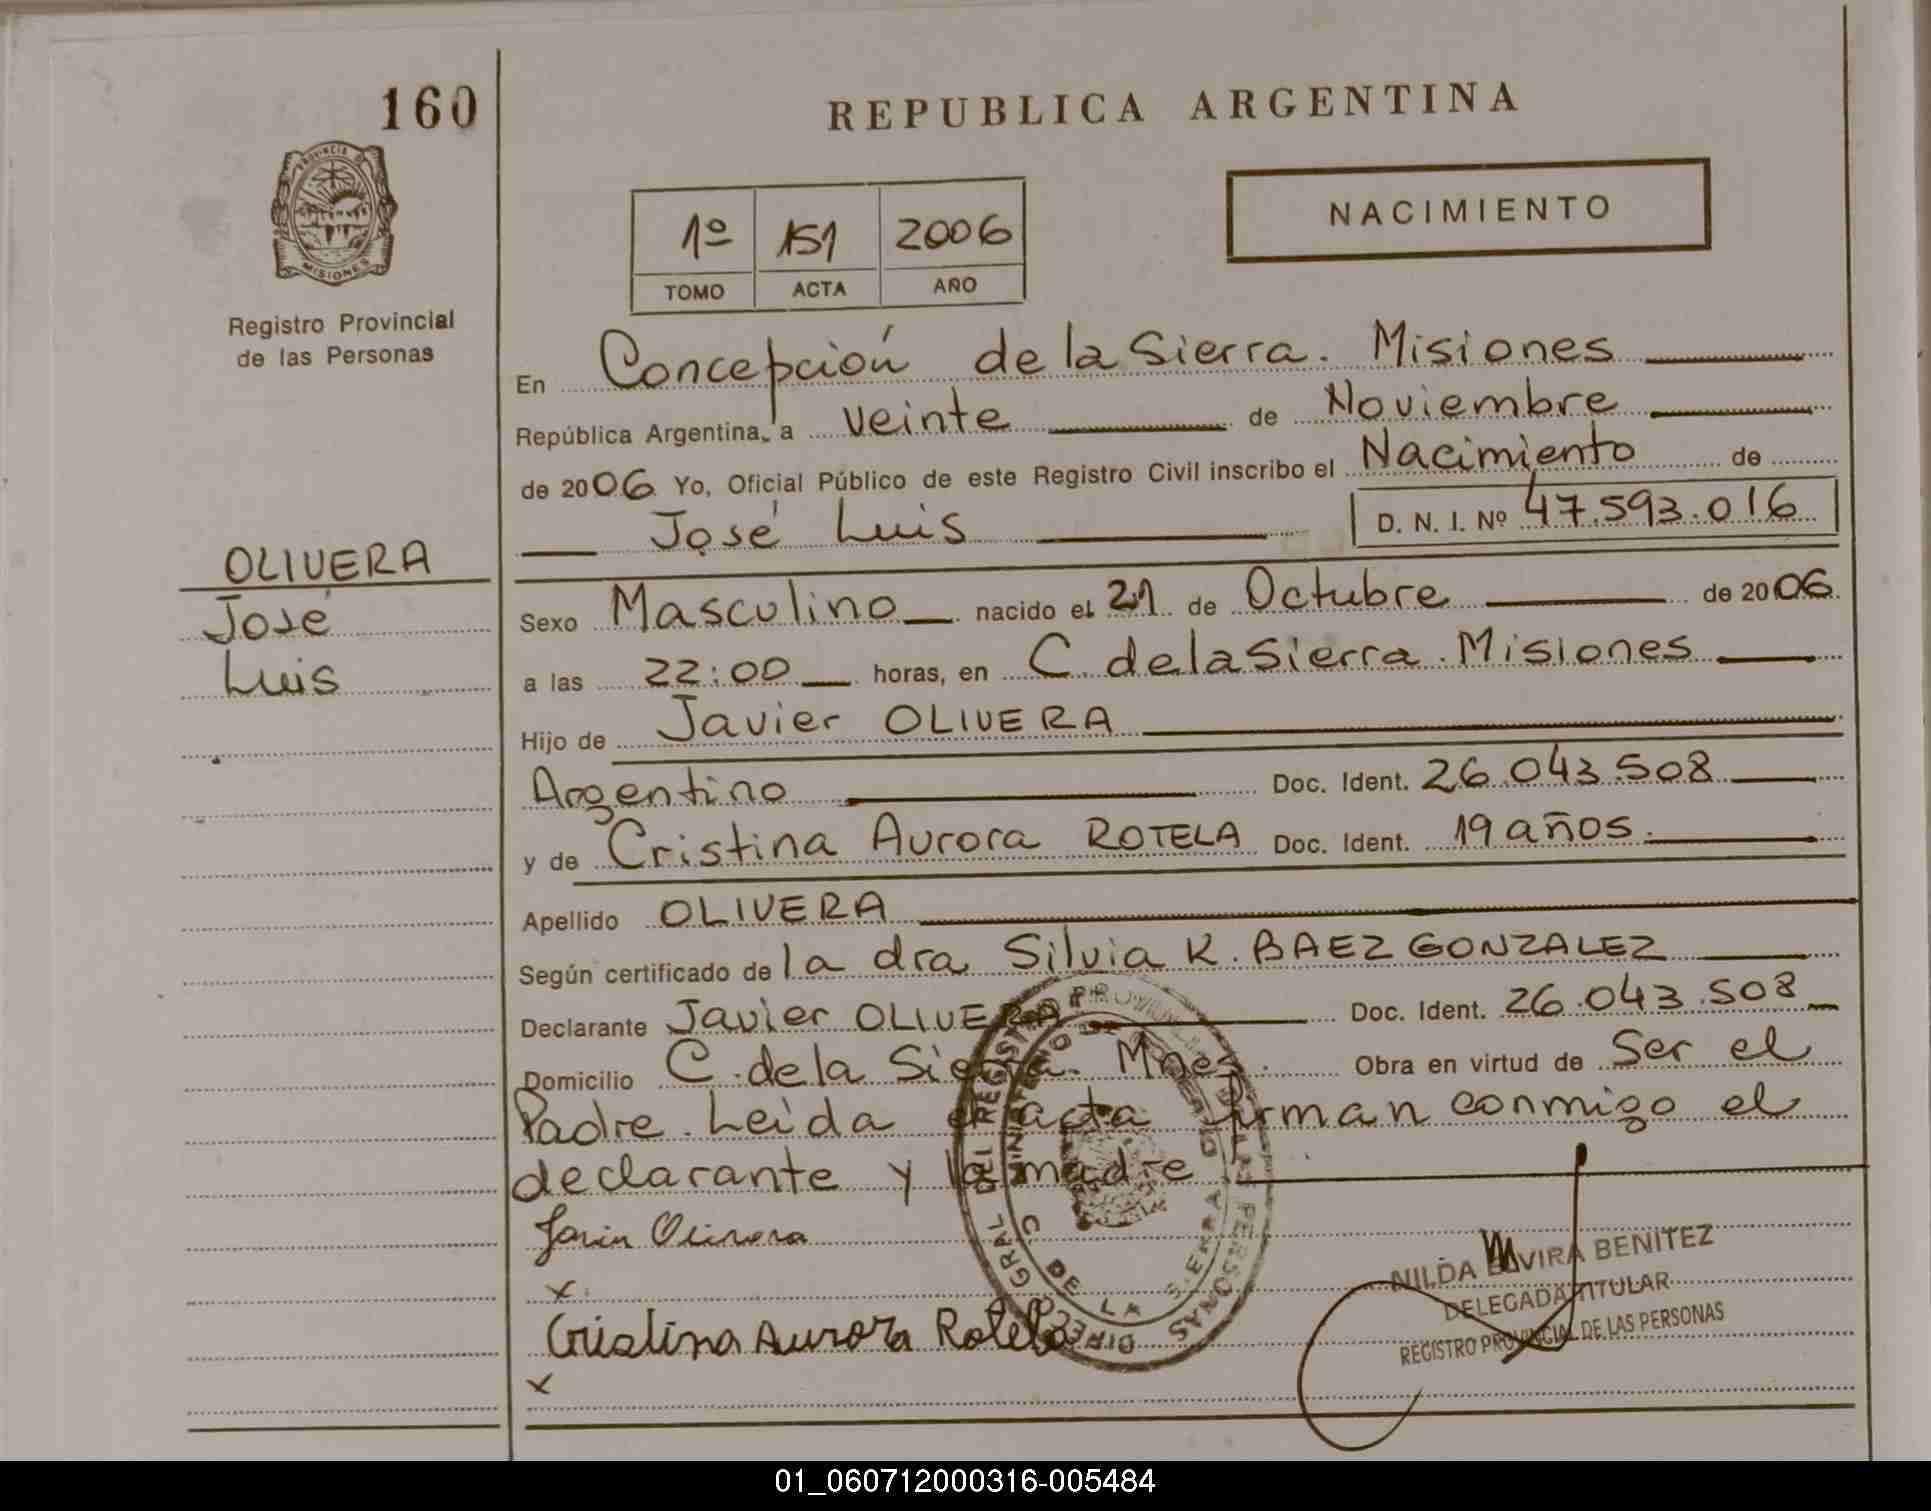 160
REPUBLICA ARGENTINA
PROVINCIA D
MISIONES
NACIMIENTO
1º 151 2006
TOMO ACTA AÑO
Registro Provincial
de las Personas
En Concepción de la Sierra. Misiones
República Argentina, a veinte de Noviembre
de 2006 Yo, Oficial Público de este Registro Civil inscribo el Nacimiento de
José Luis D. N. I. Nº 47.593.016
OLIVERA
José
Luis
Sexo Masculino nacido el 21 de Octubre de 2006
a las 22:00 horas, en C. de la Sierra. Misiones
Hijo de Javier OLIVERA
Argentino Doc. Ident. 26.043.508
y de Cristina Aurora ROTELA Doc. Ident. 19 años.
Apellido OLIVERA
Según certificado de la dra Silvia K. BAEZ GONZALEZ
Declarante Javier OLIVERA Doc. Ident. 26.043.508
Domicilio C. de la Sierra. Mnes. Obra en virtud de Ser el
Padre. Leida el acta firman conmigo el
declarante y la madre
Javier Olivera
x
Cristina Aurora Rotela
x
NILDA ELVIRA BENITEZ
DELEGADA TITULAR
REGISTRO PROVINCIAL DE LAS PERSONAS
DIREC GRAL DEL REGISTRO PROVINCIAL DE LAS PERSONAS
C DE LA SIERRA
01_060712000316-005484